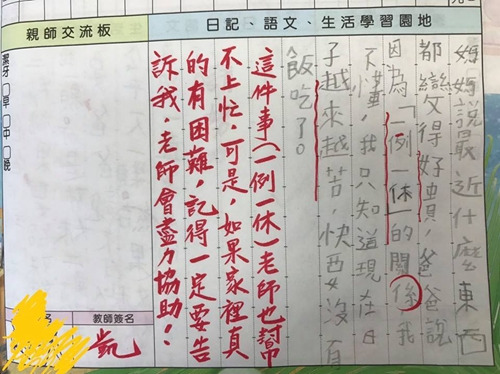 日記、語文、生活學習園地
媽媽說最近什麼東西
都變得好貴,爸爸說
因為「一例一休」的關係我
不懂,我只知道現在日
子越來越苦,快要沒有
飯吃了。
這件事(一例一休)老師也幫
不上忙,可是,如果家裡真
的有困難,記得一定要告
訴我,老師會盡力協助!
親師交流板
潔牙□早□中□晚
教師簽名
凱